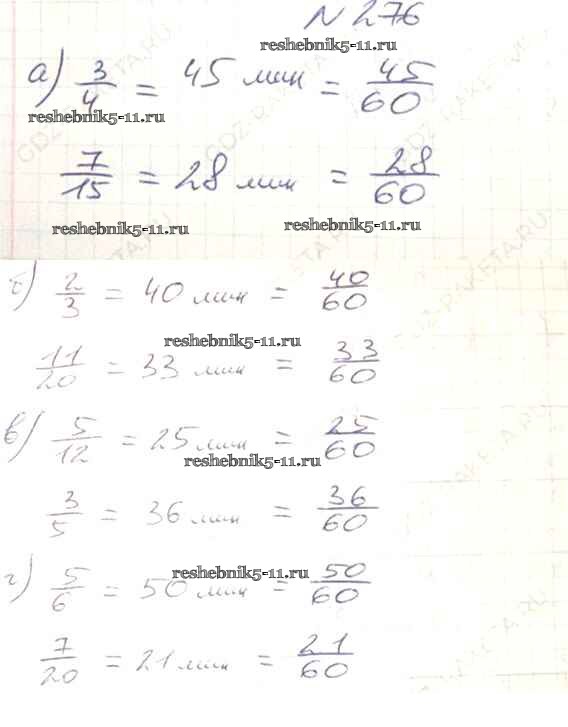 N 276
reshebnik5-11.ru
а) 3/4 = 45 мин = 45/60
reshebnik5-11.ru
7/15 = 28 мин = 28/60
reshebnik5-11.ru reshebnik5-11.ru
б) 2/3 = 40 мин = 40/60
reshebnik5-11.ru
11/20 = 33 мин = 33/60
в) 5/12 = 25 мин = 25/60
reshebnik5-11.ru
3/5 = 36 мин = 36/60
reshebnik5-11.ru
г) 5/6 = 50 мин = 50/60
7/20 = 21 мин = 21/60